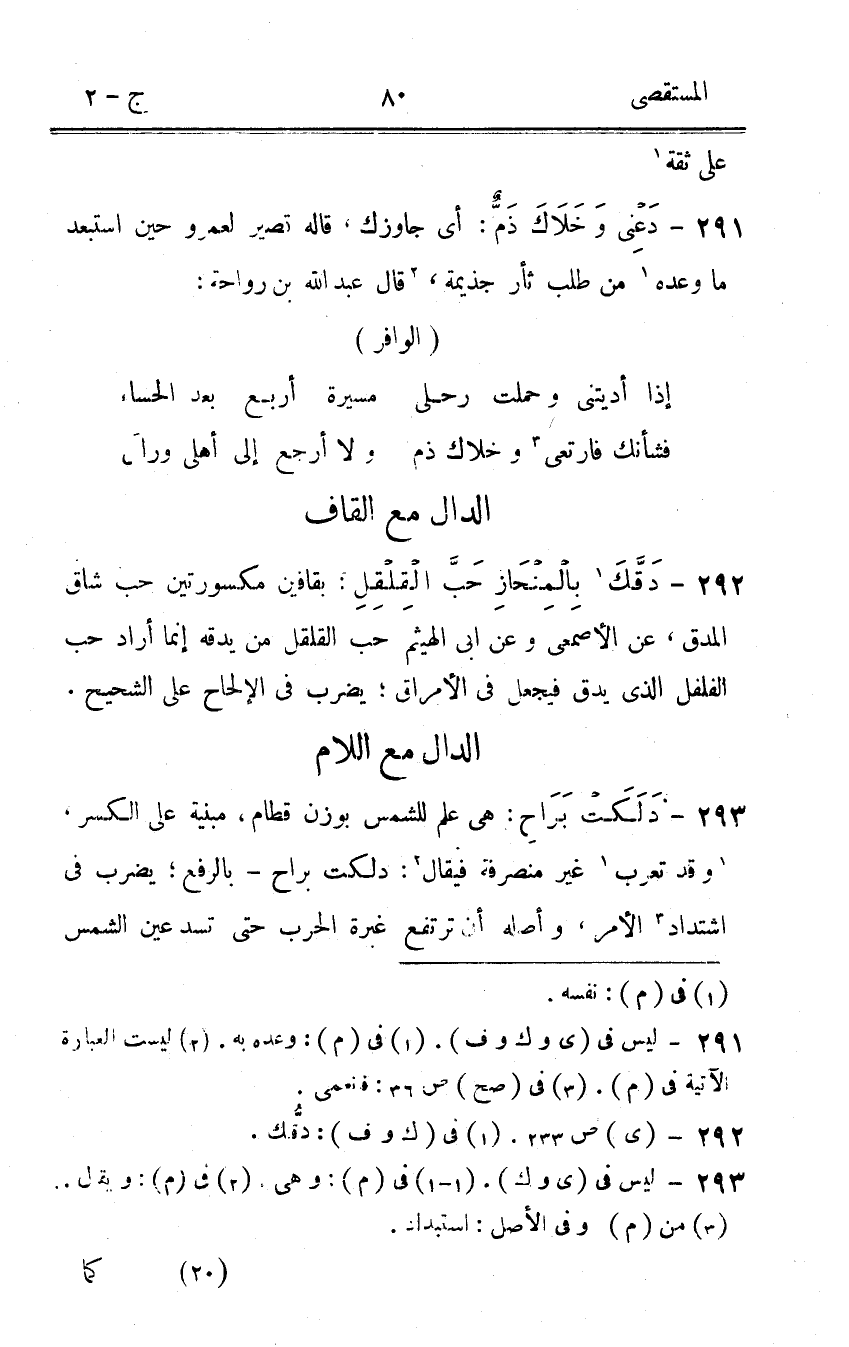 المستقصى ٨٠ ج - ٢
على ثقة ١
٢٩١ - دَعْنِى وَ خَلَاكَ ذَمٌّ : أى جاوزك ، قاله قصير لعمرو حين استبعد
ما وعده ١ من طلب ثأر جذيمة ، ٢ قال عبد الله بن رواحة :
( الوافر )
إذا أديتنى و حملت رحلى مسيرة أربع بعد الحساء
فشأنك فارتعى ٣ و خلاك ذم و لا أرجع إلى أهلى وراى
الدال مع القاف
٢٩٢ - دَقَّكَ ١ بِالْمِنْحَازِ حَبَّ الْقِلْقِلِ : بقافين مكسورتين حب شاق
المدق ، عن الأصمعى و عن ابى الهيثم حب القلقل من يدقه إنما أراد حب
الفلفل الذى يدق فيجعل فى الأمراق ؛ يضرب فى الإلحاح على الشحيح .
الدال مع اللام
٢٩٣ - دَلَكَتْ بَرَاحِ : هى علم للشمس بوزن قطام ، مبنية على الكسر ،
١ و قد تعرب ١ غير منصرفة فيقال ٢ : دلكت براح - بالرفع ؛ يضرب فى
اشتداد ٣ الأمر ، و أصله أن ترتفع غبرة الحرب حتى تسد عين الشمس
(١) فى ( م ) : نفسه .
٢٩١ - ليس فى ( ى و ك و ف ) . (١) فى ( م ) : وعده به . (٢) ليست العبارة
الآتية فى ( م ) . (٣) فى ( صح ) ص ٣٦ : فانعمى .
٢٩٢ - ( ى ) ص ٢٣٣ . (١) فى ( ك و ف ) : دُقُّك .
٢٩٣ - ليس فى ( ى و ك ) . (١-١) فى ( م ) : و هى . (٢) فى ( م ) : و يقال .
(٣) من ( م ) و فى الأصل : استبداد .
(٢٠) كما